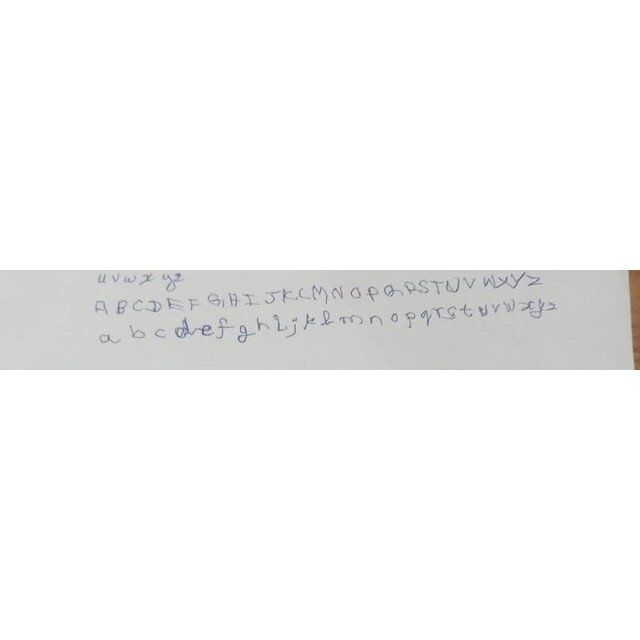 u v w x y z
A B C D E F G H I J K L M N O P Q R S T U V W X Y Z
a b c d e f g h i j k l m n o p q r s t u v w x y z